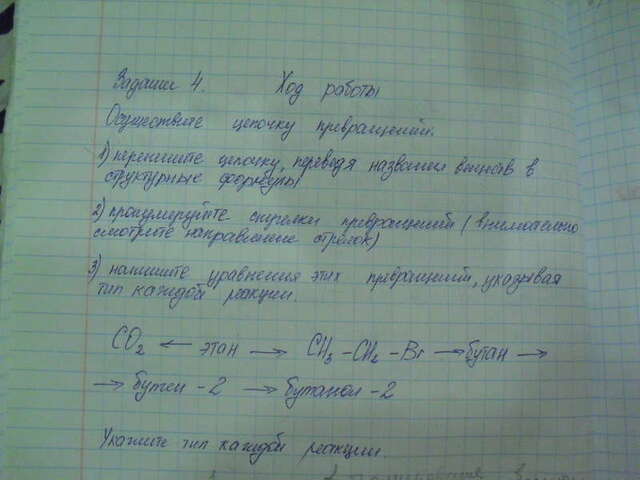 Задание 4. Ход работы
Осуществите цепочку превращений.
1) перепишите цепочку, переведя названия веществ в
структурные формулы
2) пронумеруйте стрелки превращений (внимательно
смотрите направление стрелок)
3) напишите уравнения этих превращений, указывая
тип каждой реакции.
CO₂ ← этан → CH₃ – CH₂ – Br → бутан →
→ бутен – 2 → бутанол – 2
Укажите тип каждой реакции.